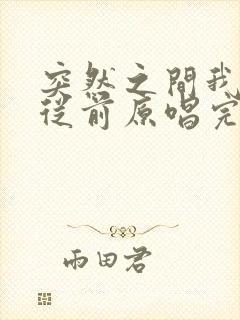 突然之间我
从前原唱完
雨田君